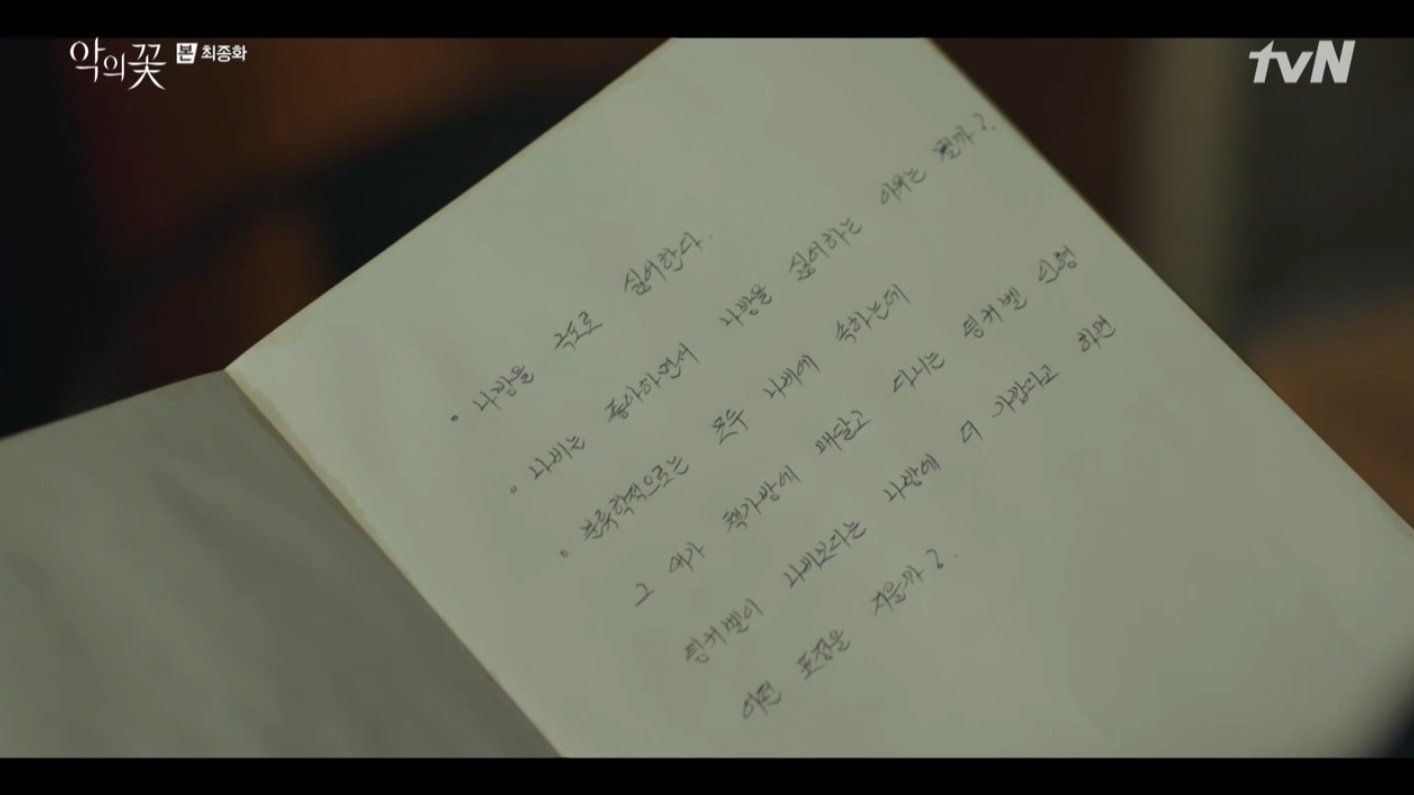 악의꽃 본 최종화
tvN
• 나방을 극도로 싫어한다.
• 나비는 좋아하면서 나방을 싫어하는 이유는 뭘까?
• 분류학적으로는 모두 나비에 속하는데
그 애가 책가방에 매달고 다니는 팅커벨 인형
팅커벨이 나비보다는 나방에 더 가깝다고 하면
어떤 표정을 지을까?